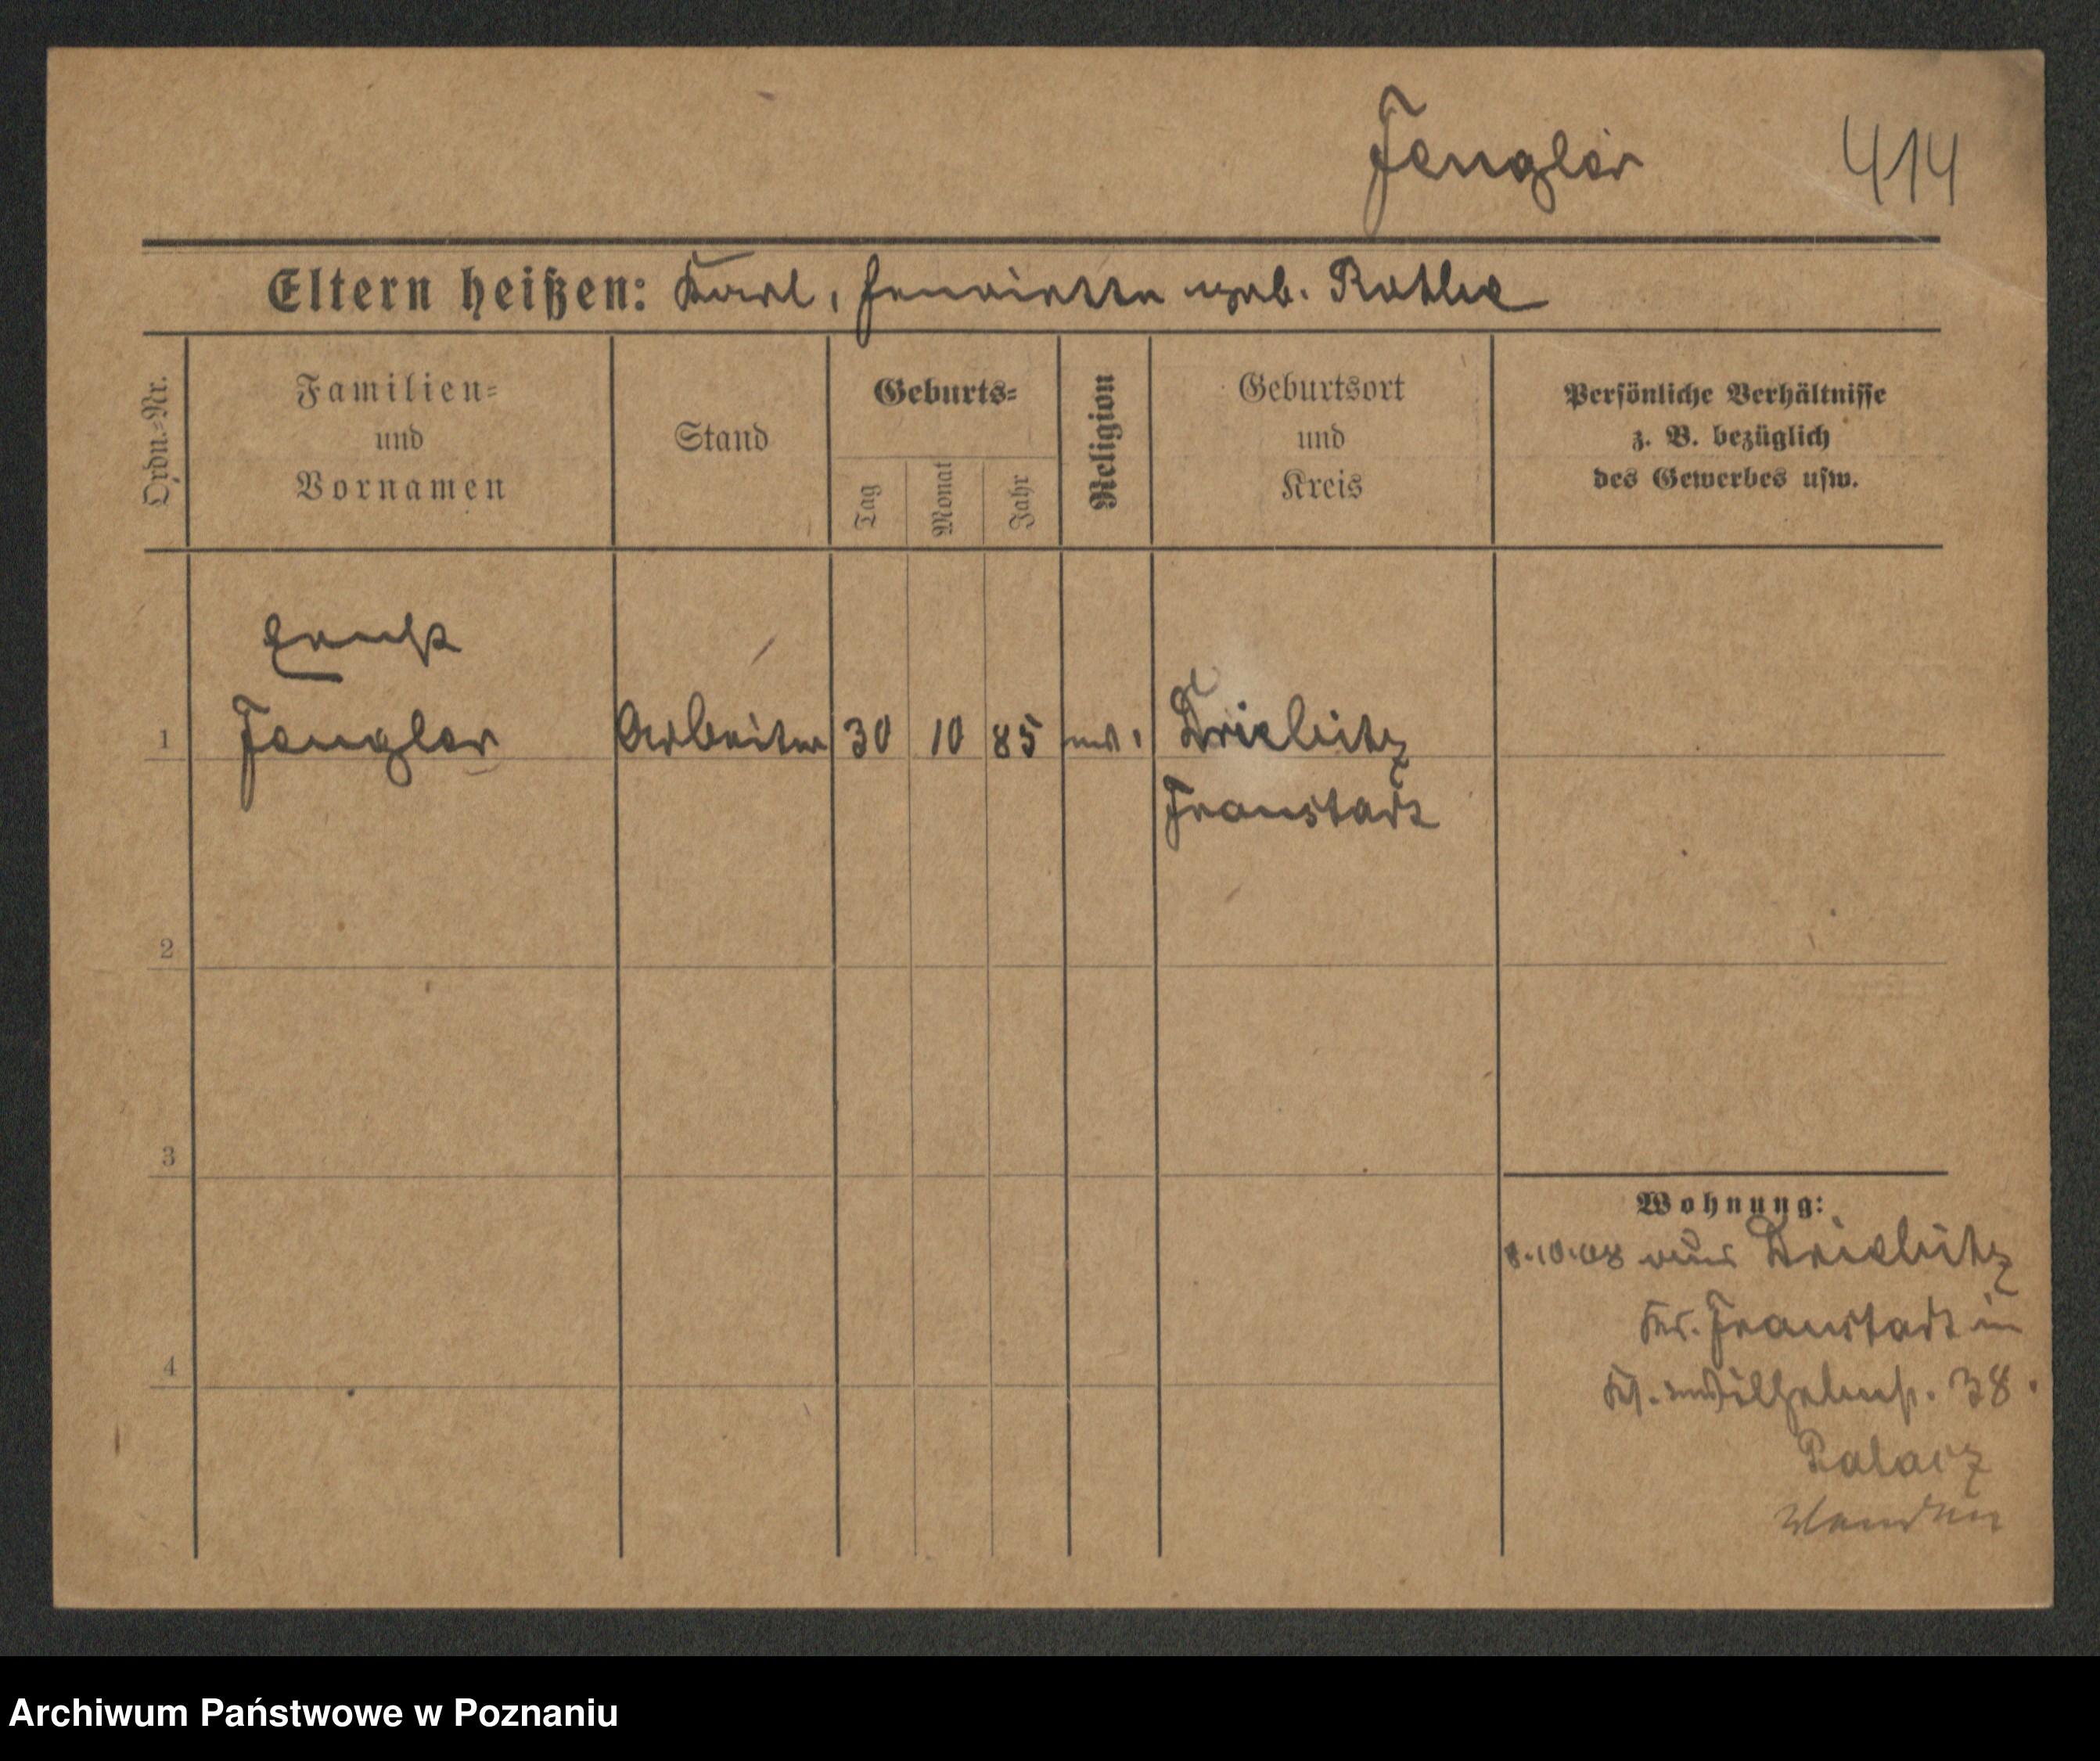 Fengler 414
Eltern heißen: Karl, Henriette geb. Rothe
Ordn.-Nr.
Familien-
und
Vornamen
Stand
Geburts-
Tag
Monat
Jahr
Religion
Geburtsort
und
Kreis
Persönliche Verhältnisse
z. B. bezüglich
des Gewerbes usw.
Ernst
1 Fengler Arbeiter 30 10 85 Driebitz
Fraustadt
2
3
4
Wohnung:
8.10.08 aus Driebitz
Kr. Fraustadt in
38.
Palacz
Archiwum Państwowe w Poznaniu